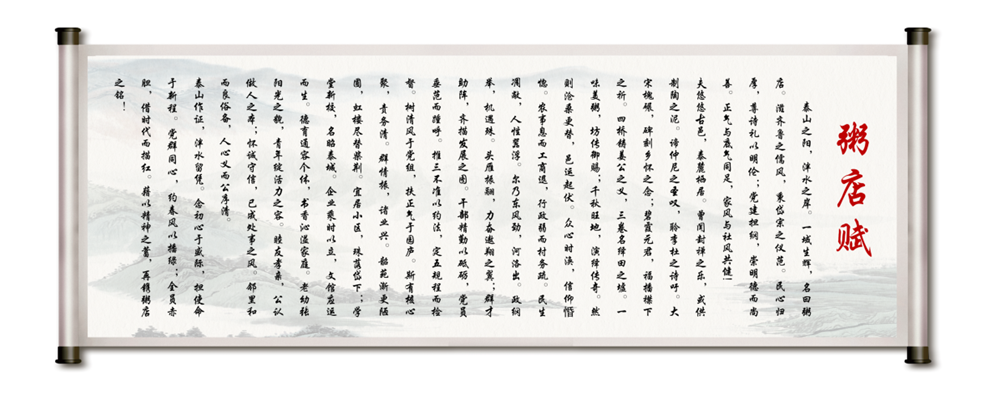 粥店赋
泰山之阳，泮水之岸。一域生辉，名曰粥
店。滋齐鲁之儒风，秉岱宗之仪范。民心归
厚，尊诗礼以明伦；党建担纲，崇明德而尚
善。正气与底气同足，家风与社风共健！
夫悠悠古邑，泰麓福居。曾闻封禅之乐，或供
制陶之泥。谛仲尼之圣叹，聆李杜之诗吁。大
宋槐碾，碑刻乡怀之念；碧霞元君，福播樑下
之祈。四桥精美公之义，三卷名绎田之墟。一
味美粥，坊传御赐；千秋旺地，演绎传奇。然
则沧桑更替，邑运起伏。众心时涣，信仰惛
惛。农事息而工商退，行政弱而村务疏。民生
凋敝，人性嚣浮。尔乃东风劲，河洛出。政纲
举，机遇殊。头雁振翮，力奋遨翔之翼；群才
助阵，齐描发展之图。干部精勤以砥砺，党员
垂范而撞呼。推三不准以约法，定五规程而检
督。树清风于党组，扶正气于园庐。斯有核心
聚，责务清。群情振，诸业兴。韶苑渐更陋
圃，虹楼尽替柴荆。宜居小区，珠落岱下；学
堂新校，名昭泰城。企业乘时以立，文馆应运
而生。德育通窍个体，书香沁溢家庭。老幼张
阳光之貌，青年绽活力之容。睦友孝亲，公认
做人之本；怀诚守信，已成处事之风。邻里和
而良俗备，人心义而公序清。
泰山作证，泮水留凭。念初心于盛际，担使命
于新程。党群同心，约春风以播绿；全员赤
胆，借时代而描红。藉以精神之蓄，再镌粥店
之铭！